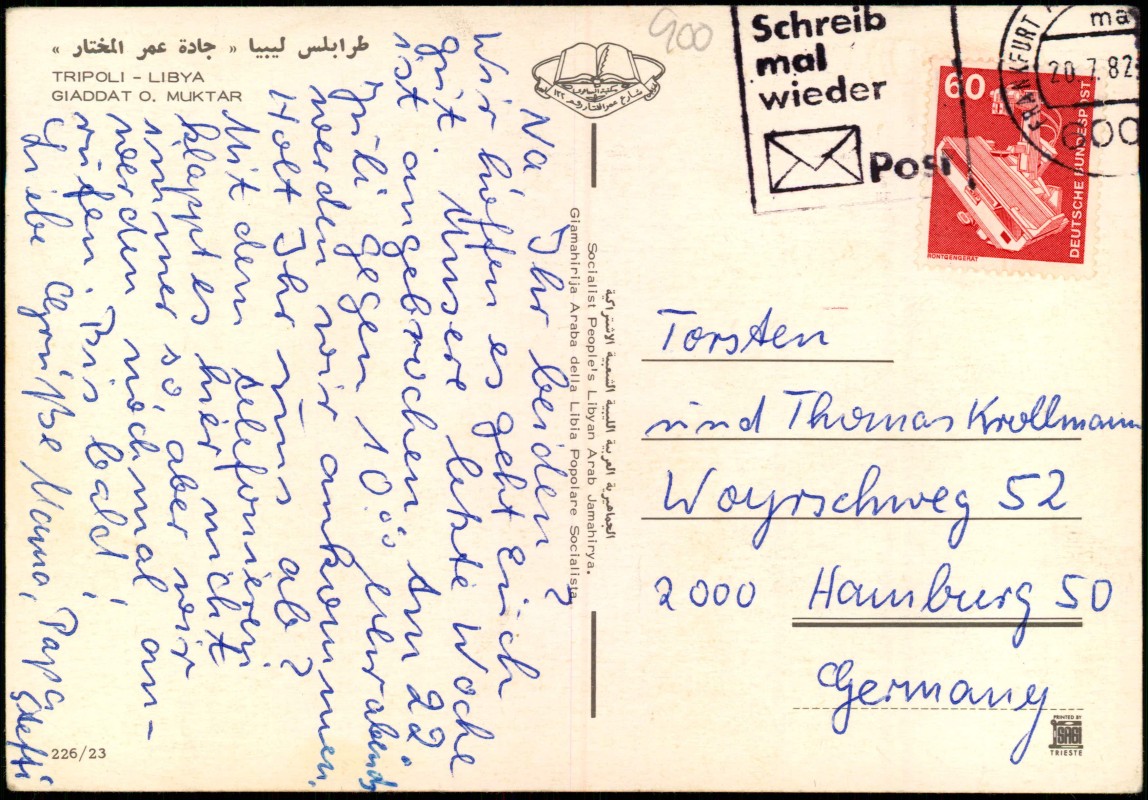 طرابلس ليبيا « جادة عمر المختار »
TRIPOLI - LIBYA
GIADDAT O. MUKTAR
900
Na Ihr beiden?
Wir hoffen es geht Euch
gut. Unsere letzte Woche
ist angebrochen. Am 22.
Juli gegen 10.°° Uhr abends
werden wir ankommen.
Holt Ihr uns ab?
Mit dem telefonieren
klappt es hier nicht
immer so aber wir
werden nochmal an-
rufen. Bis bald!
Liebe Grüße Mama, Papa
Steffi
226/23
شارع عمر المختار
الجماهيرية العربية الليبية الشعبية الاشتراكية
Socialist People's Libyan Arab Jamahirya.
Giamahirija Araba della Libia Popolare Socialista
Schreib
mal
wieder
Post
FRANKFURT
20.7.82
60
DEUTSCHE BUNDESPOST
RÖNTGENGERÄT
Torsten
und Thomas Krollmann
Woyrschweg 52
2000 Hamburg 50
Germany
PRINTED BY
SAGI
TRIESTE